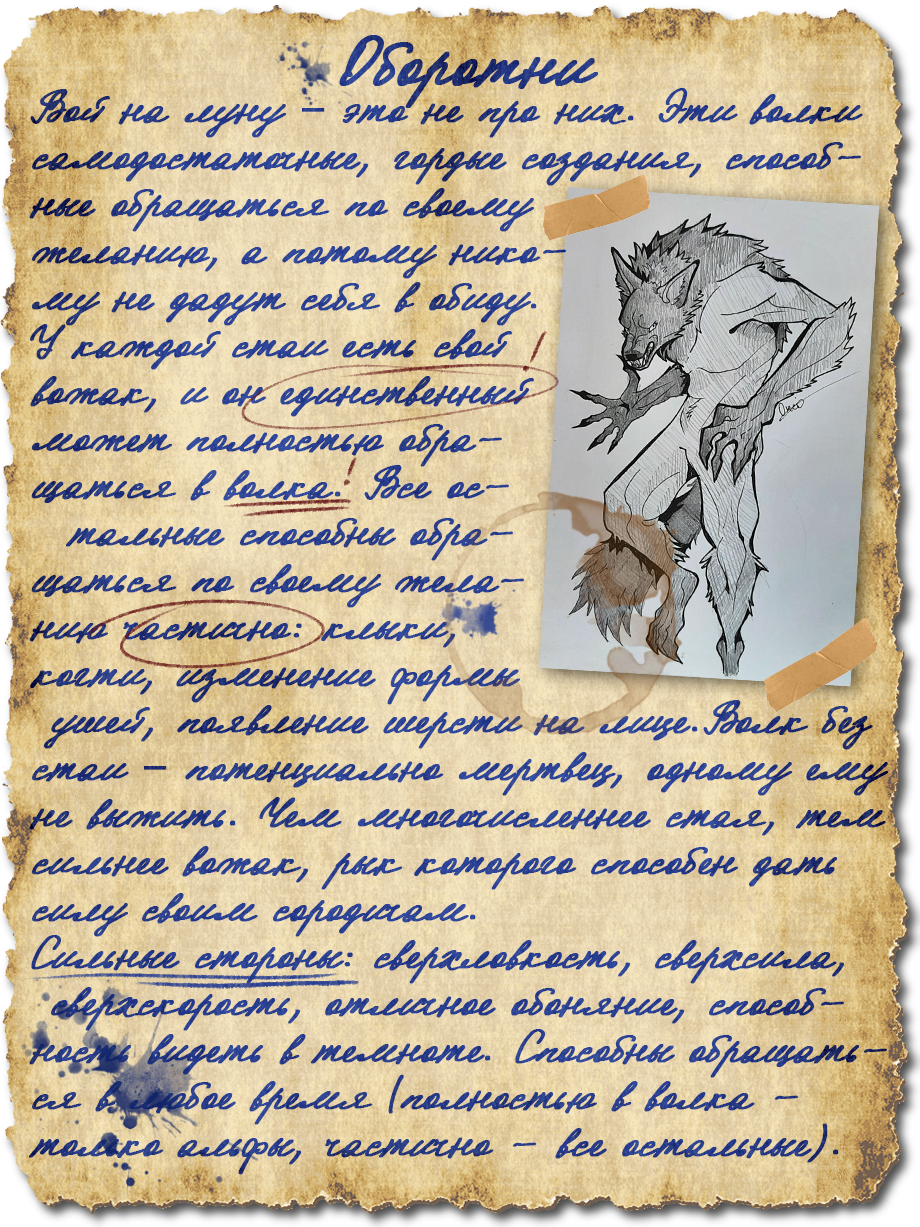 Оборотни
Вой на луну — это не про них. Эти волки
самодостаточные, гордые создания, способ-
ные обращаться по своему
желанию, а потому нико-
му не дадут себя в обиду.
У каждой стаи есть свой
вожак, и он единственный!
может полностью обра-
щаться в волка.! Все ос-
тальные способны обра-
щаться по своему жела-
нию частично: клыки,
когти, изменение формы
ушей, появление шерсти на лице. Волк без
стаи — потенциально мертвец, одному ему
не выжить. Чем многочисленнее стая, тем
сильнее вожак, рык которого способен дать
силу своим сородичам.
Сильные стороны: сверхловкость, сверхсила,
сверхскорость, отличное обоняние, способ-
ность видеть в темноте. Способны обращать-
ся в любое время (полностью в волка —
только альфы, частично — все остальные).